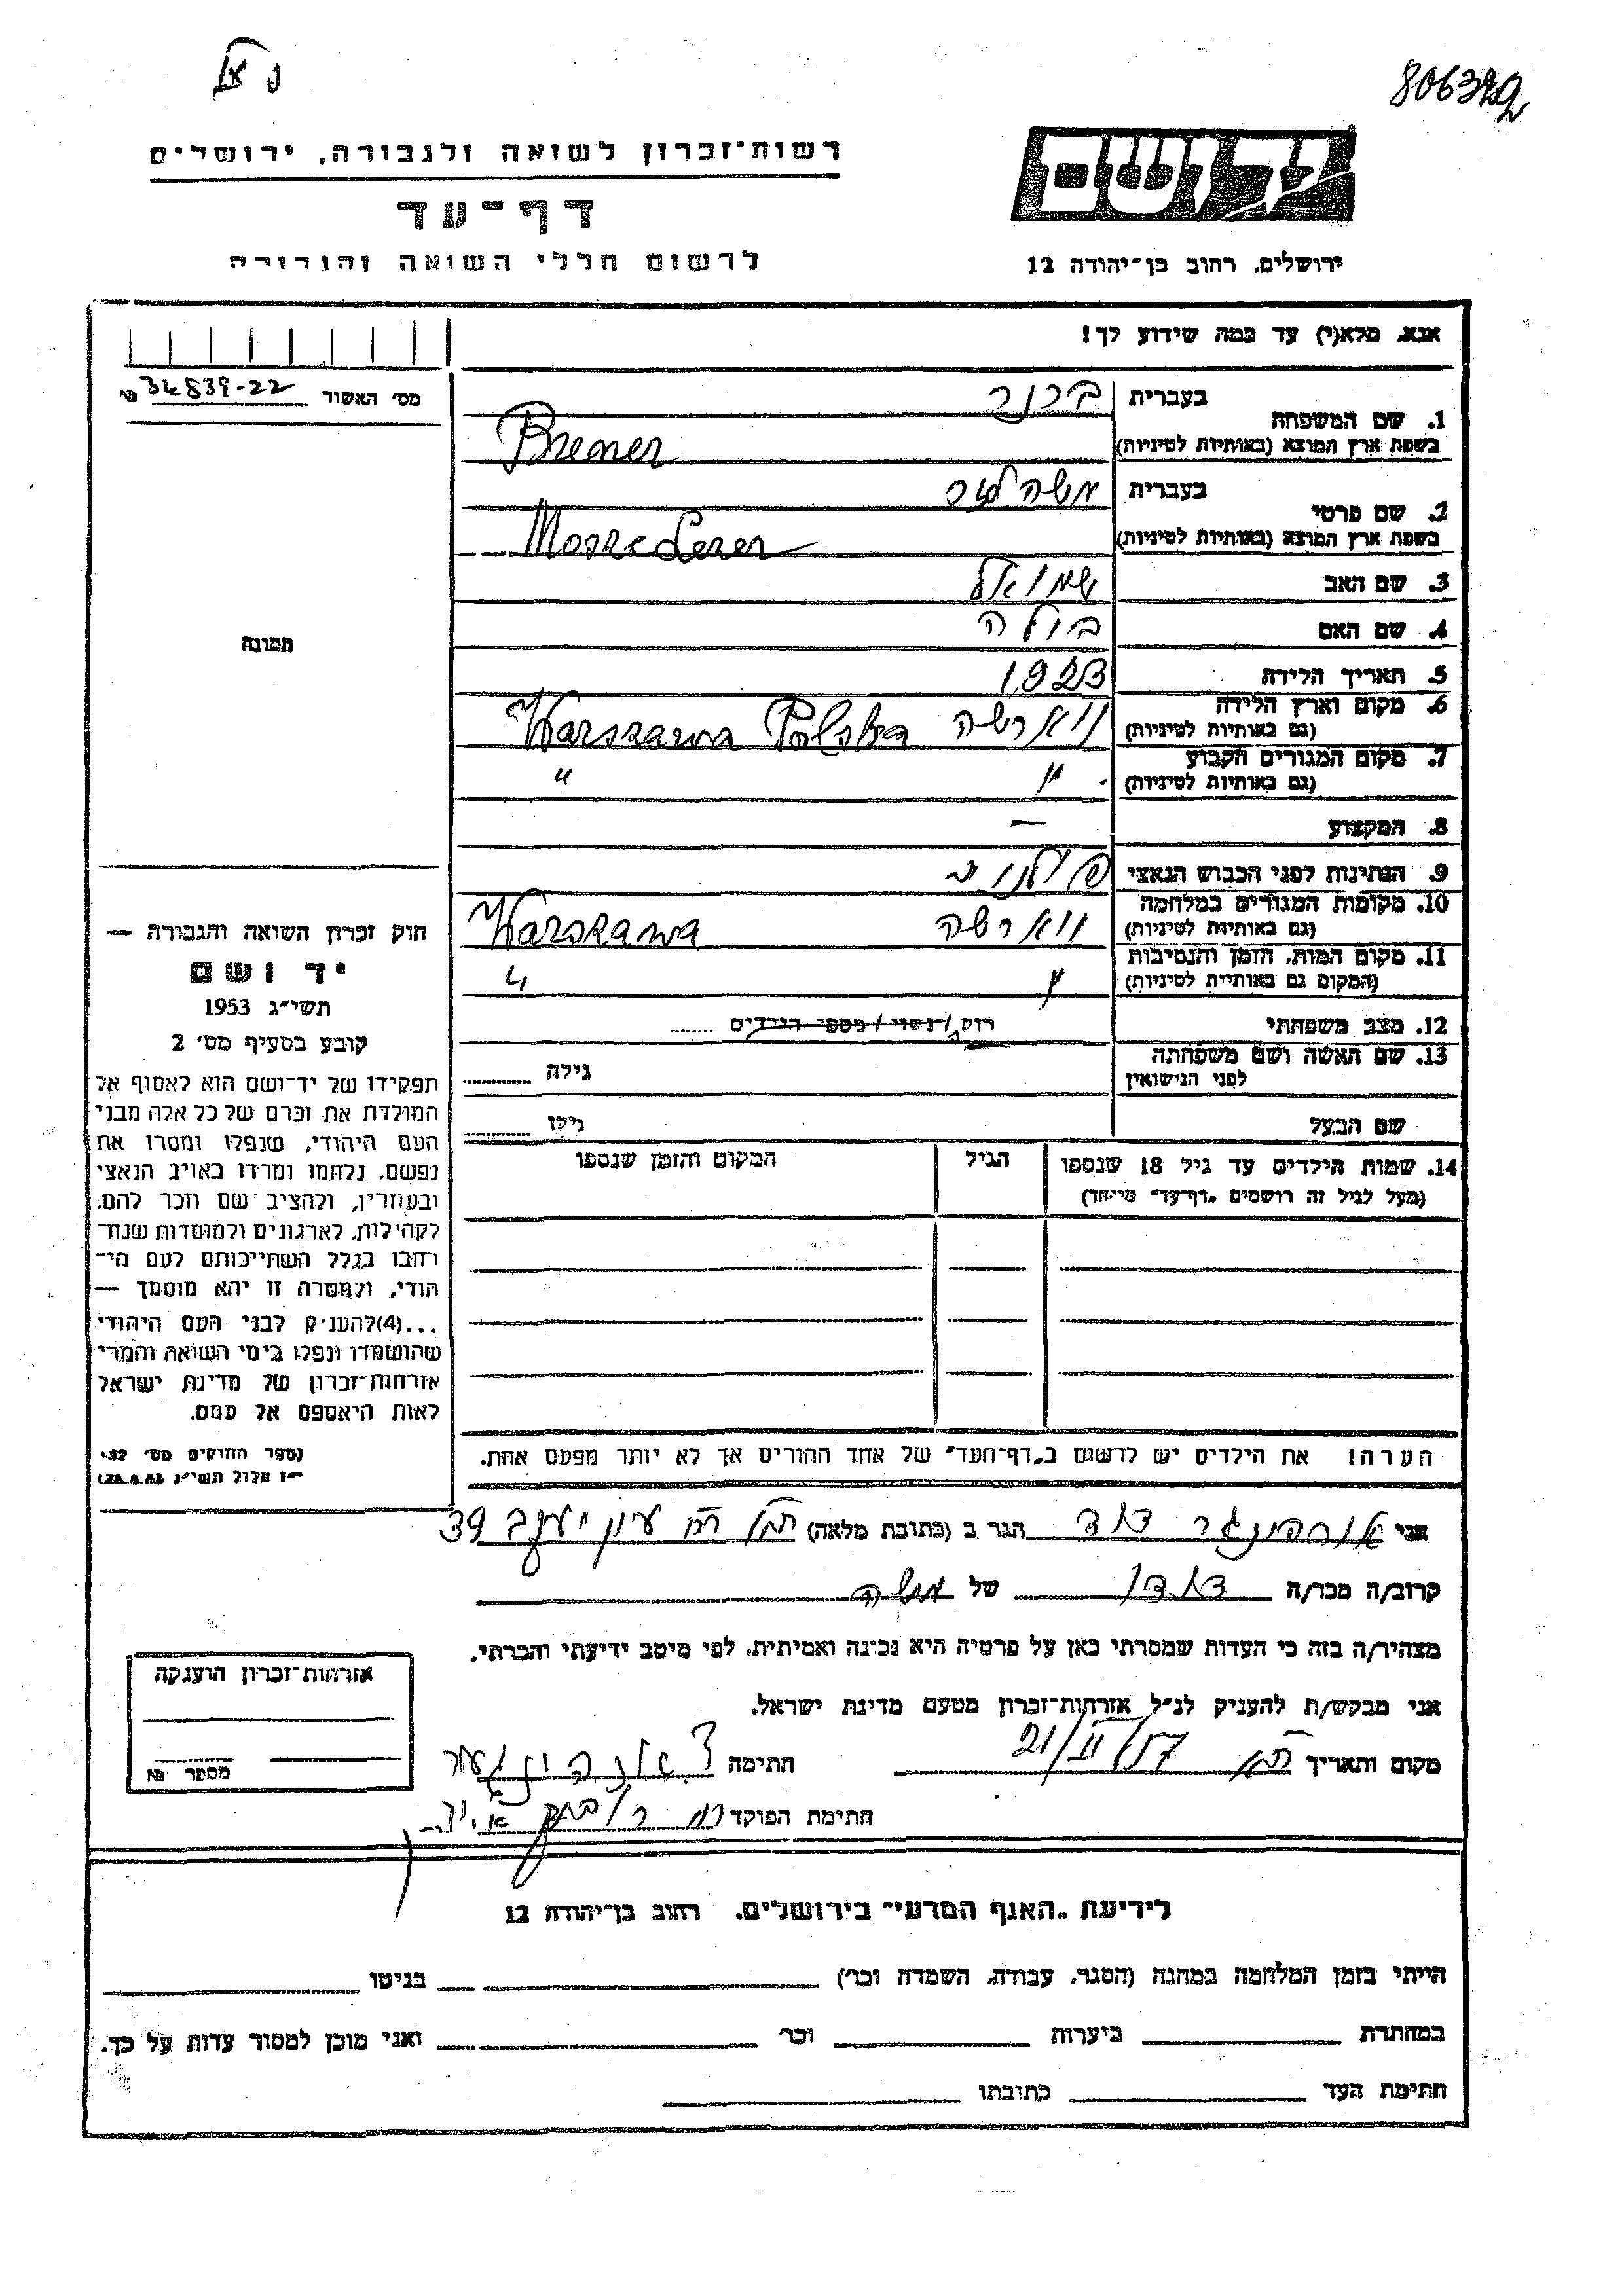 806379
רשות־זכרון לשואה ולגבורה, ירושלים
דף־עד
לרשום חללי השואה והגבורה
יד ושם
ירושלים, רחוב בן־יהודה 12
אנא, מלא(י) עד כמה שידוע לך!
מס׳ האשור 34839-22
1. שם המשפחה
בעברית ברנר
בשפת ארץ המוצא (באותיות לטיניות) Brener
2. שם פרטי
בעברית משה לזר
בשפת ארץ המוצא (באותיות לטיניות) Mosze Lezer
3. שם האב שמואל
4. שם האם ביילה
5. תאריך הלידה 1923
6. מקום וארץ הלידה ווארשה Warszawa Polska
(גם באותיות לטיניות)
7. מקום המגורים הקבוע " "
(גם באותיות לטיניות)
8. המקצוע —
9. הנתינות לפני הכבוש הנאצי פולנית
10. מקומות המגורים במלחמה ווארשה Warszawa
(גם באותיות לטיניות)
11. מקום המות, הזמן והנסיבות " "
(המקום גם באותיות לטיניות)
12. מצב משפחתי רווק/נשוי/מספר הילדים ......
13. שם האשה ושם משפחתה גילה
לפני הנישואין
שם הבעל גילו
14. שמות הילדים עד גיל 18 שנספו הגיל המקום והזמן שנספו
(מעל לגיל זה רושמים „דף־עד״ מיוחד)
הערה! את הילדים יש לרשום ב„דף־העד״ של אחד ההורים אך לא יותר מפעם אחת.
תמונה
חוק זכרון השואה והגבורה —
יד ושם
תשי״ג 1953
קובע בסעיף מס׳ 2
תפקידו של יד־ושם הוא לאסוף אל
המולדת את זכרם של כל אלה מבני
העם היהודי, שנפלו ומסרו את
נפשם, נלחמו ומרדו באויב הנאצי
ובעוזריו, ולהציב שם וזכר להם,
לקהילות, לארגונים ולמוסדות שנח־
רחבו בגלל השתייכותם לעם הי־
הודי, ולמטרה זו יהא מוסמך —
...(4) להעניק לבני העם היהודי
שהושמדו ונפלו בימי השואה והמרי
אזרחות־זכרון של מדינת ישראל
לאות היאספם אל עמם.
(ספר החוקים מס׳ 132,
י״ז אלול תשי״ג 28.8.53)
אני דוד הגר ב (כתובת מלאה) 39
קרוב/ה מכר/ה דודו של משה
מצהיר/ה בזה כי העדות שמסרתי כאן על פרטיה היא נכונה ואמיתית, לפי מיטב ידיעתי והכרתי.
אני מבקש/ת להעניק לנ״ל אזרחות־זכרון מטעם מדינת ישראל.
מקום ותאריך 21/II/57 חתימה
חתימת הפוקד
אזרחות־זכרון הוענקה
מספר №
לידיעת „האגף המדעי״ בירושלים, רחוב בן־יהודה 12
הייתי בזמן המלחמה במחנה (הסגר, עבודה, השמדה וכו׳) בגיטו
במחתרת ביערות וכו׳ ואני מוכן למסור עדות על כך.
חתימת העד כתובתו